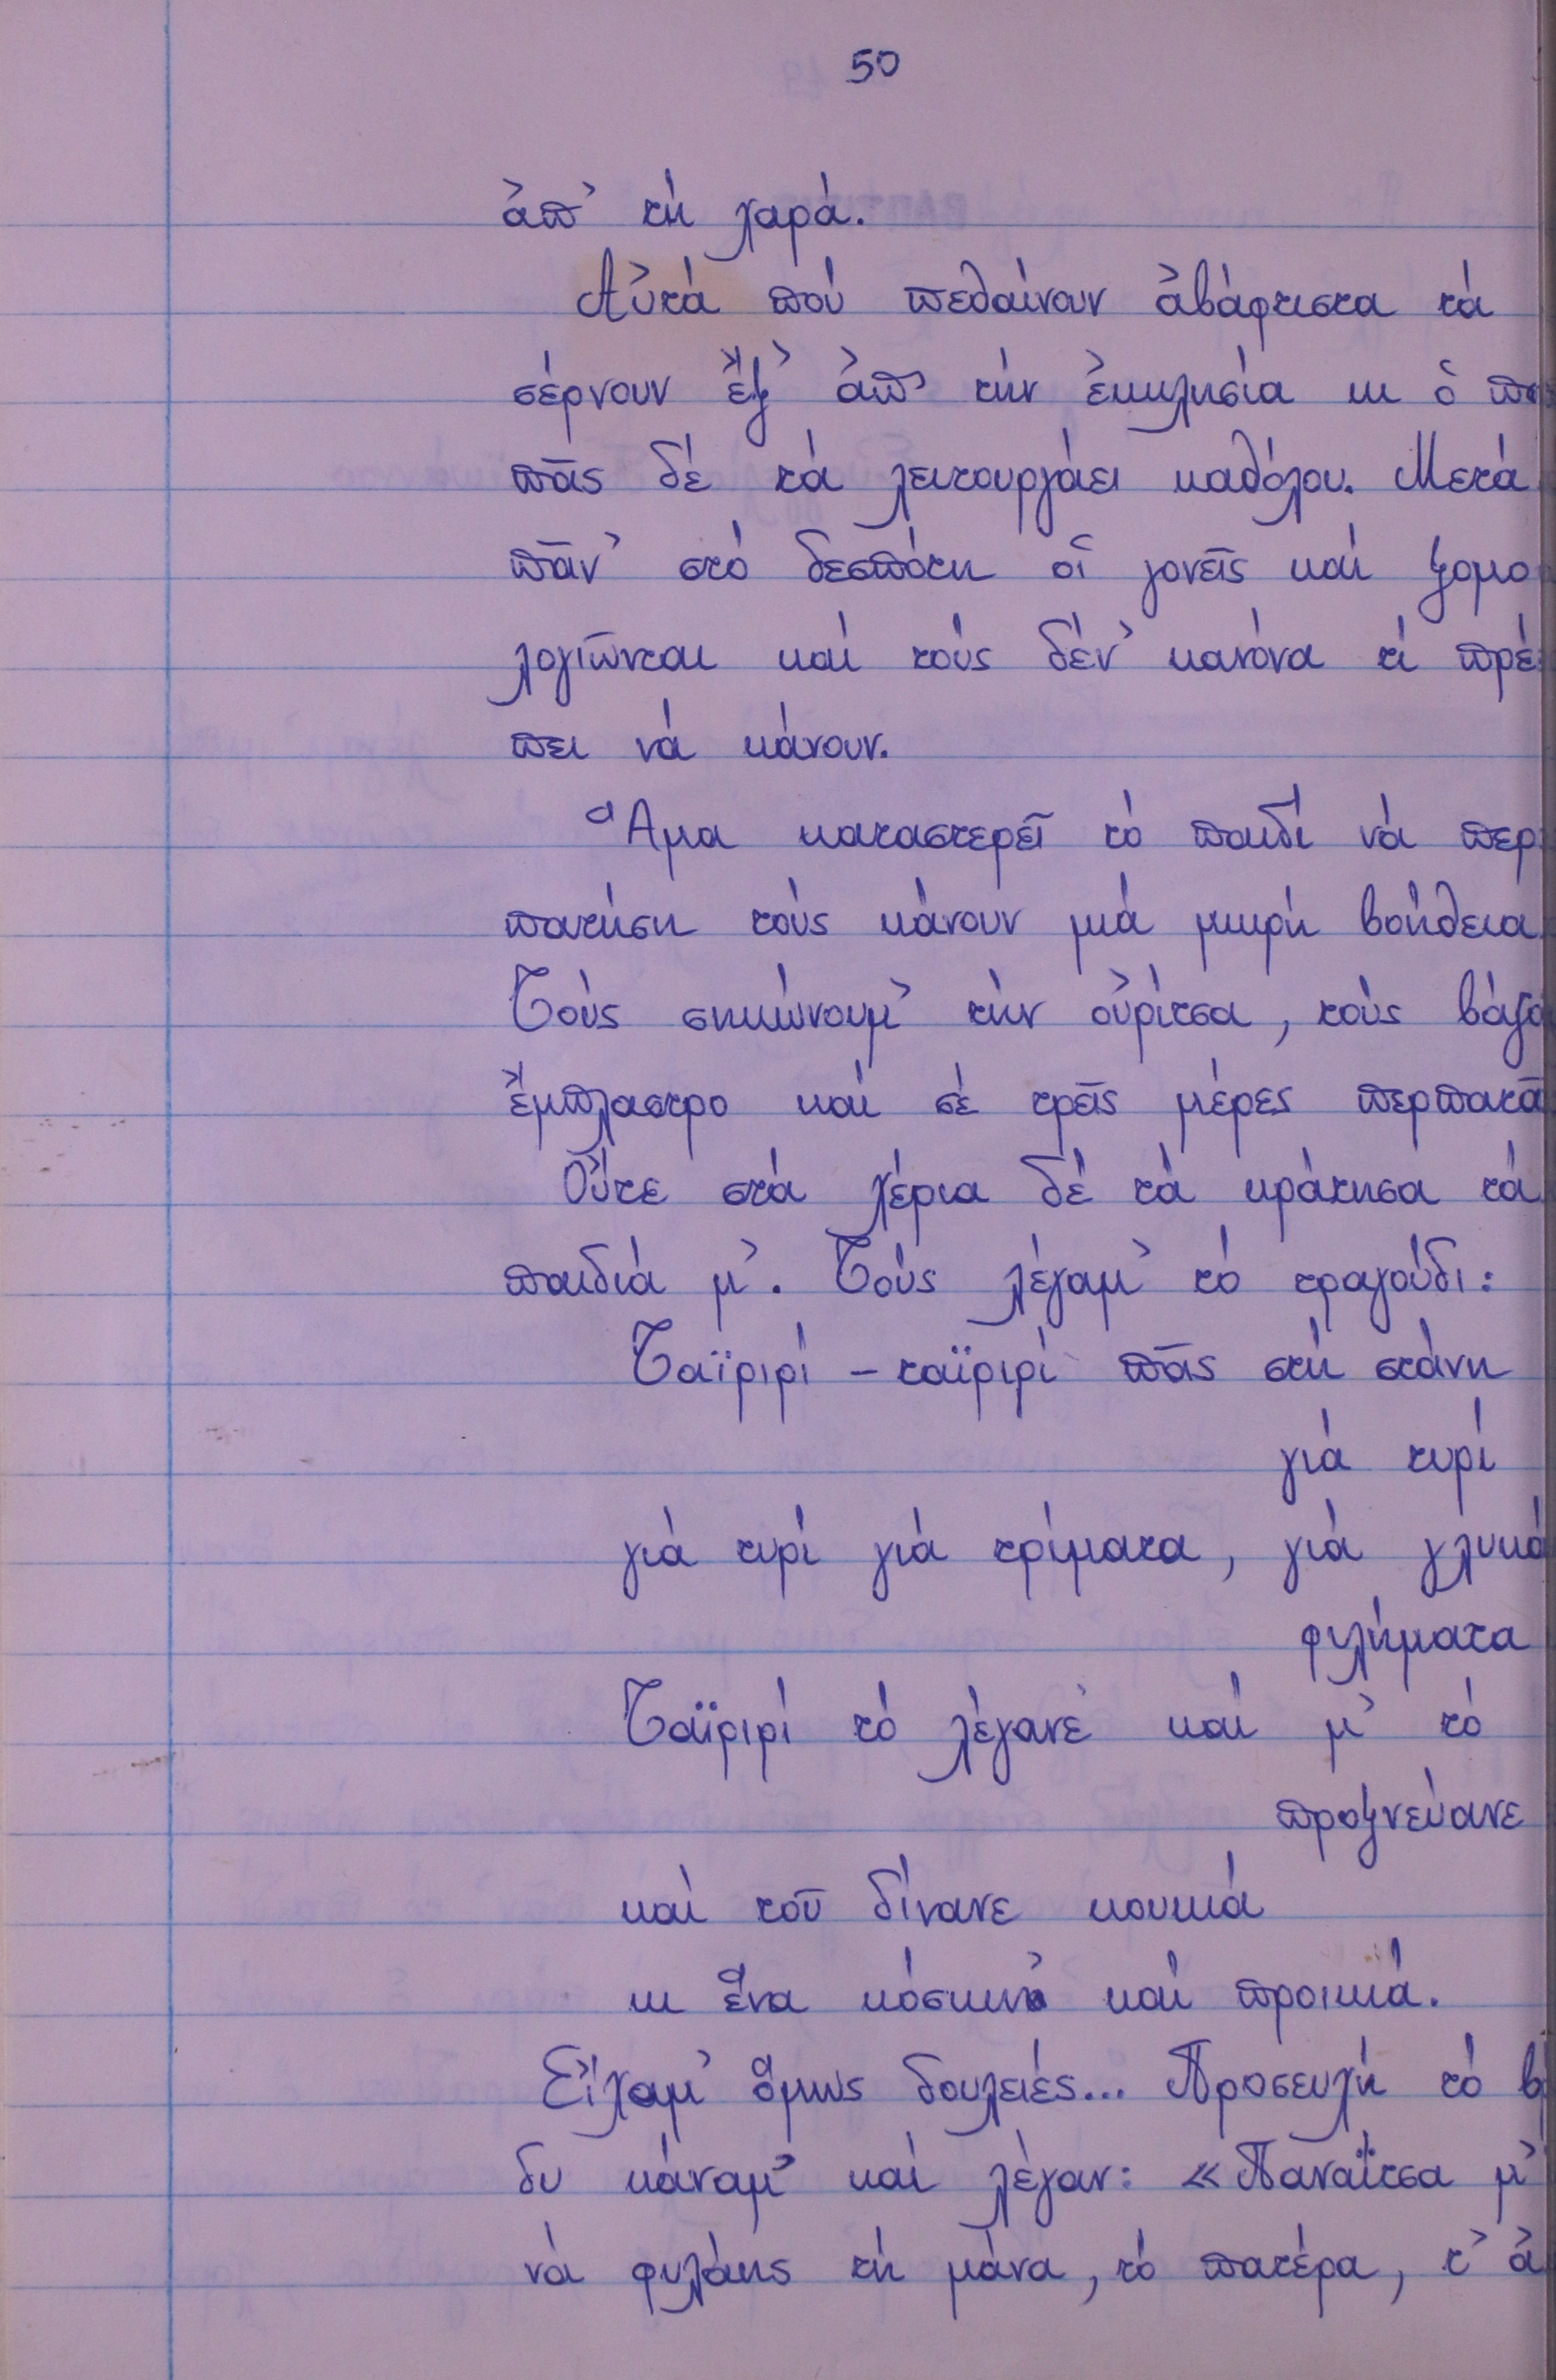 50
ἀπ' τή χαρά.
Αὐτά πού πεθαίνουν ἀβάφτιστα τά
σέρνουν ἔξ' ἀπ' τήν ἐκκλησία κι ὁ πα
πᾶς δέ τά λειτουργάει καθόλου. Μετά
πᾶν' στό δεσπότη οἱ γονεῖς καί ξομο
λογιῶνται καί τούς δέν' κανόνα τί πρέ
πει νά κάνουν.
Ἅμα καταστερεῖ τό παιδί νά περ
πατήση τούς κάνουν μιά μικρή βοήθεια.
Τούς σηκώνουμ' τήν οὐρίτσα, τούς βάζο
ἔμπλαστρο καί σέ τρεῖς μέρες περπατᾶ
Οὔτε στά χέρια δέ τά κράτησα τά
παιδιά μ'. Τούς λέγαμ' τό τραγούδι:
Ταϊριρί - ταϊριρί πᾶς στή στάνη
γιά τυρί
γιά τυρί γιά τρίματα, γιά γλυκά
φιλήματα
Ταϊριρί τό λέγανε καί μ' τό
προξνεύανε
καί τοῦ δίνανε κουκιά
κι ἕνα κόσκινο καί προικιά.
Εἴχαμ' ὅμως δουλειές... Προσευχή τό β
δυ κάναμ' καί λέγαν: «Παναΐτσα μ'
νά φυλάης τή μάνα, τό πατέρα, τ' ἀ